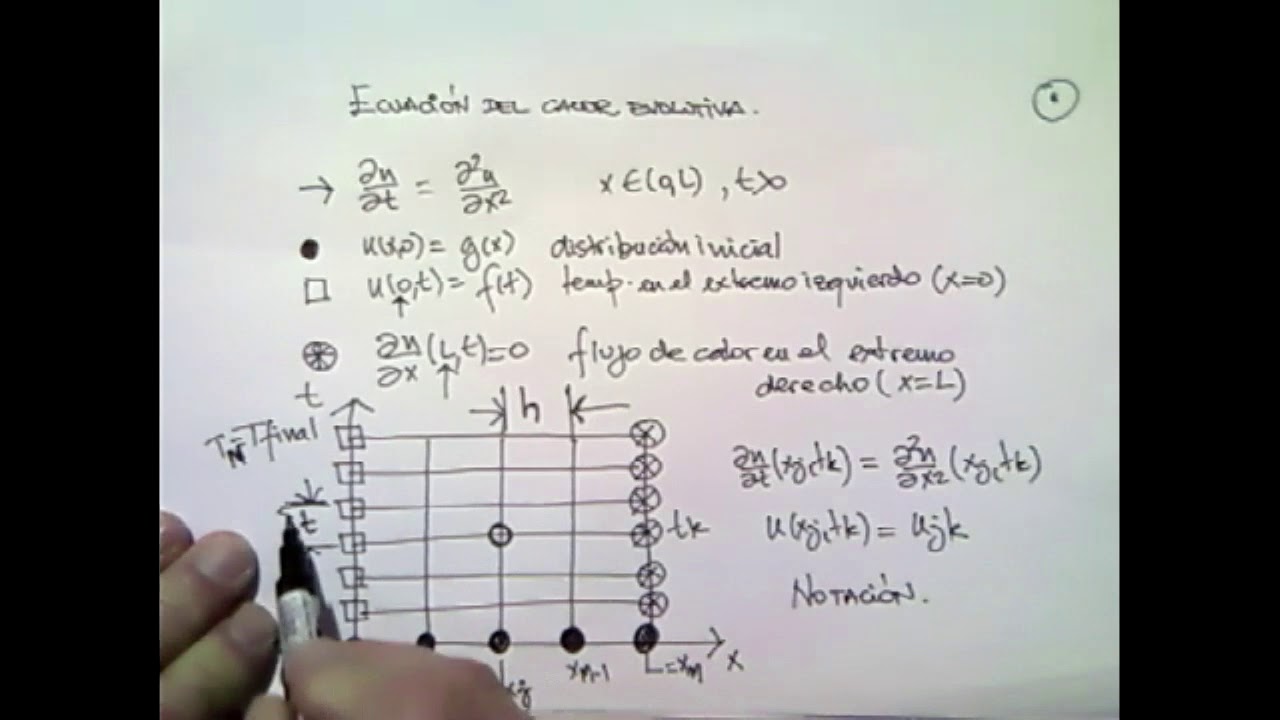 ECUACIÓN DEL CALOR EVOLUTIVA.
→ ∂u/∂t = ∂²u/∂x² x∈(0,L), t>0
u(x,0)= g(x) distribución inicial
u(0,t)= f(t) temp. en el extremo izquierdo (x=0)
∂u/∂x (L,t)=0 flujo de calor en el extremo
derecho (x=L)
t
h
TN=Tfinal
∂u/∂t (xj,tk) = ∂²u/∂x² (xj,tk)
t
tk
u(xj,tk) = ujk
NOTACIÓN.
xj
xm-1
L=xm
x